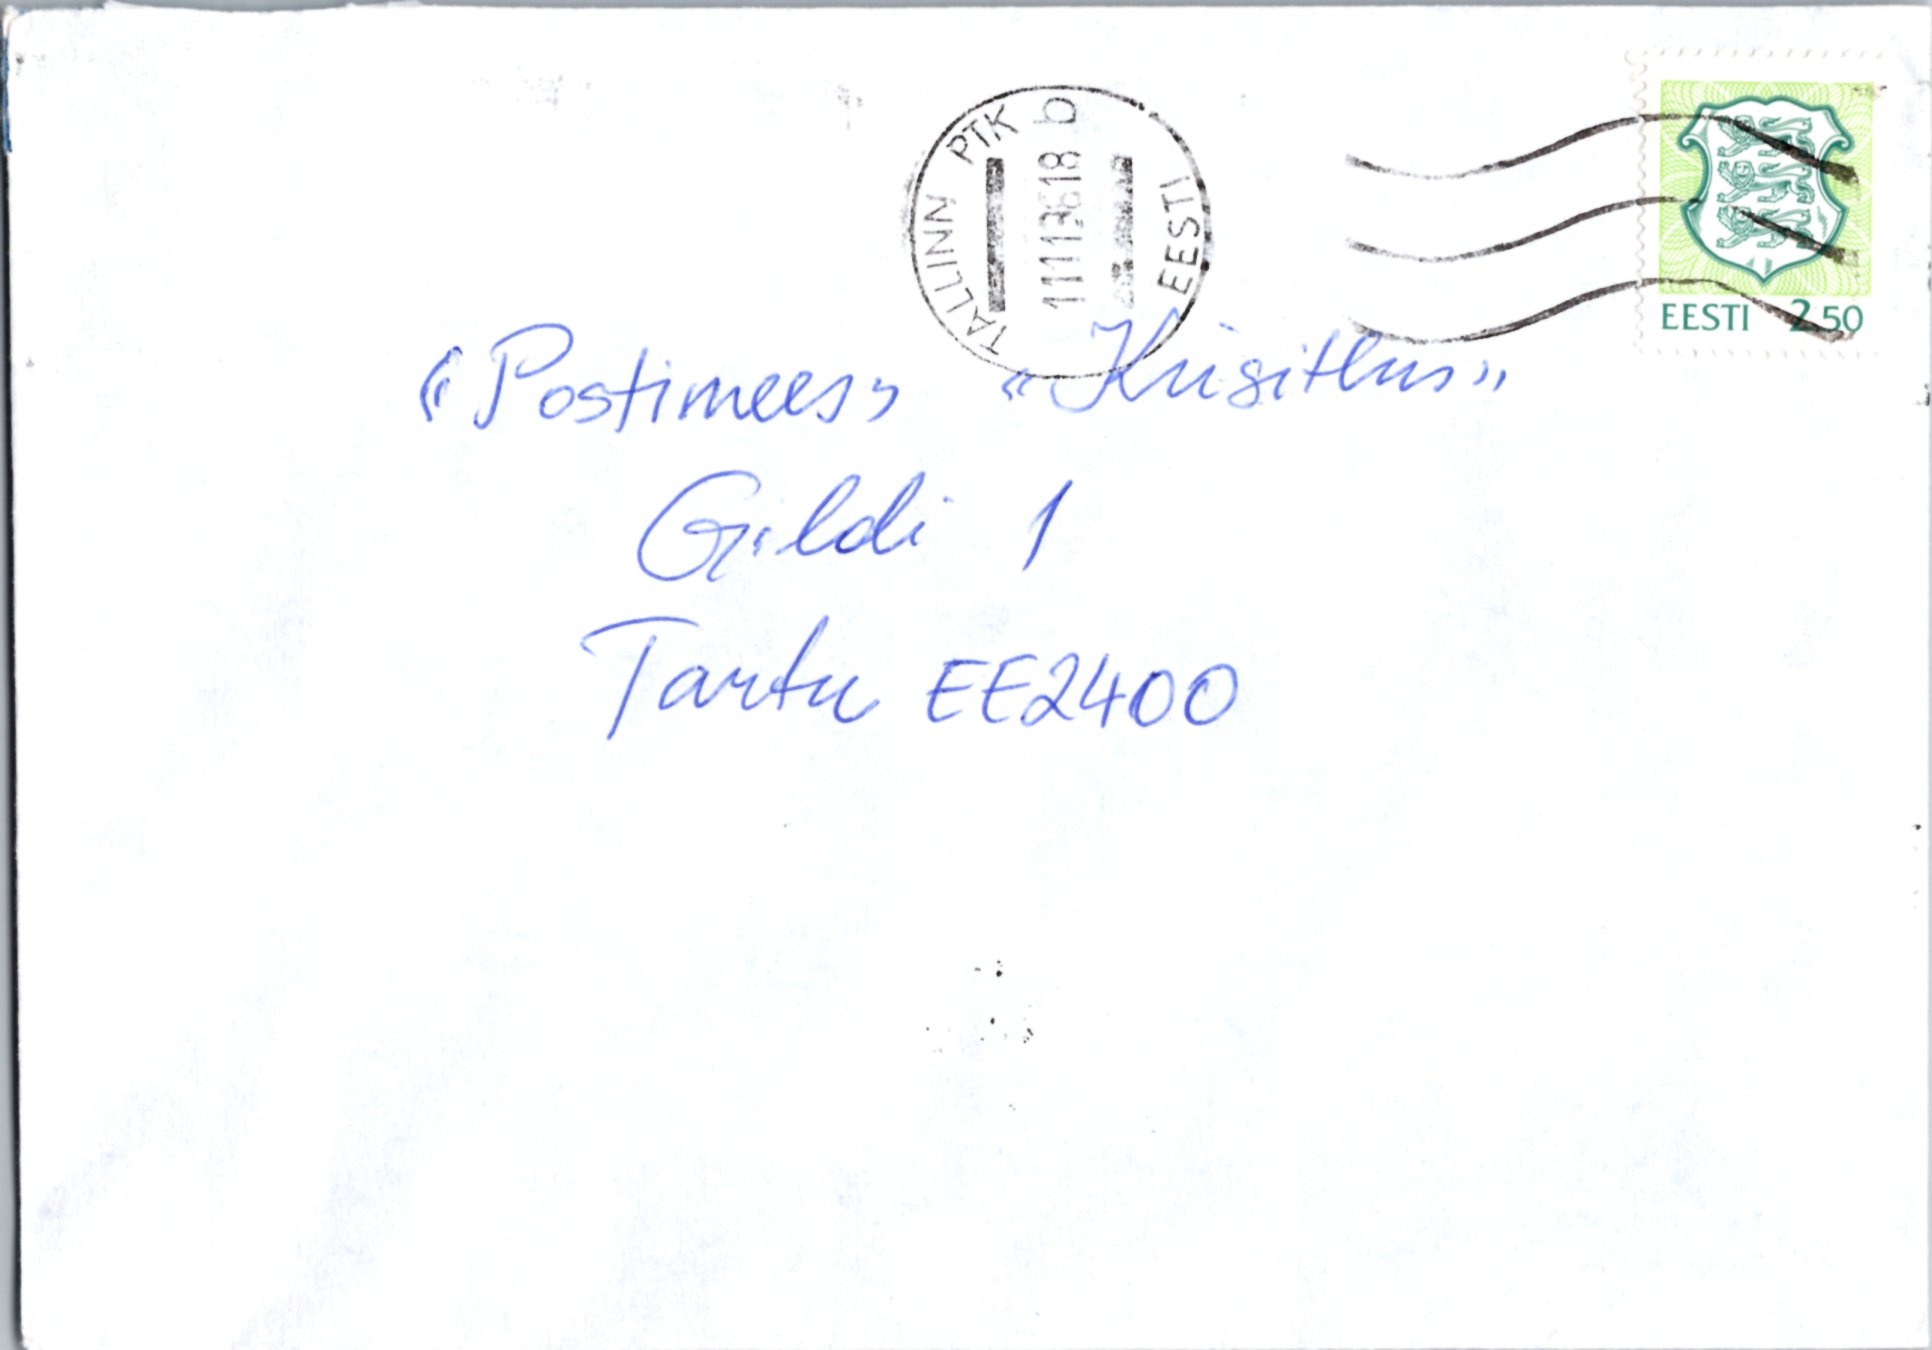 TALLINN PTK b
EESTI
EESTI 2.50
«Postimees» «Küsitlus»
Gildi 1
Tartu EE2400